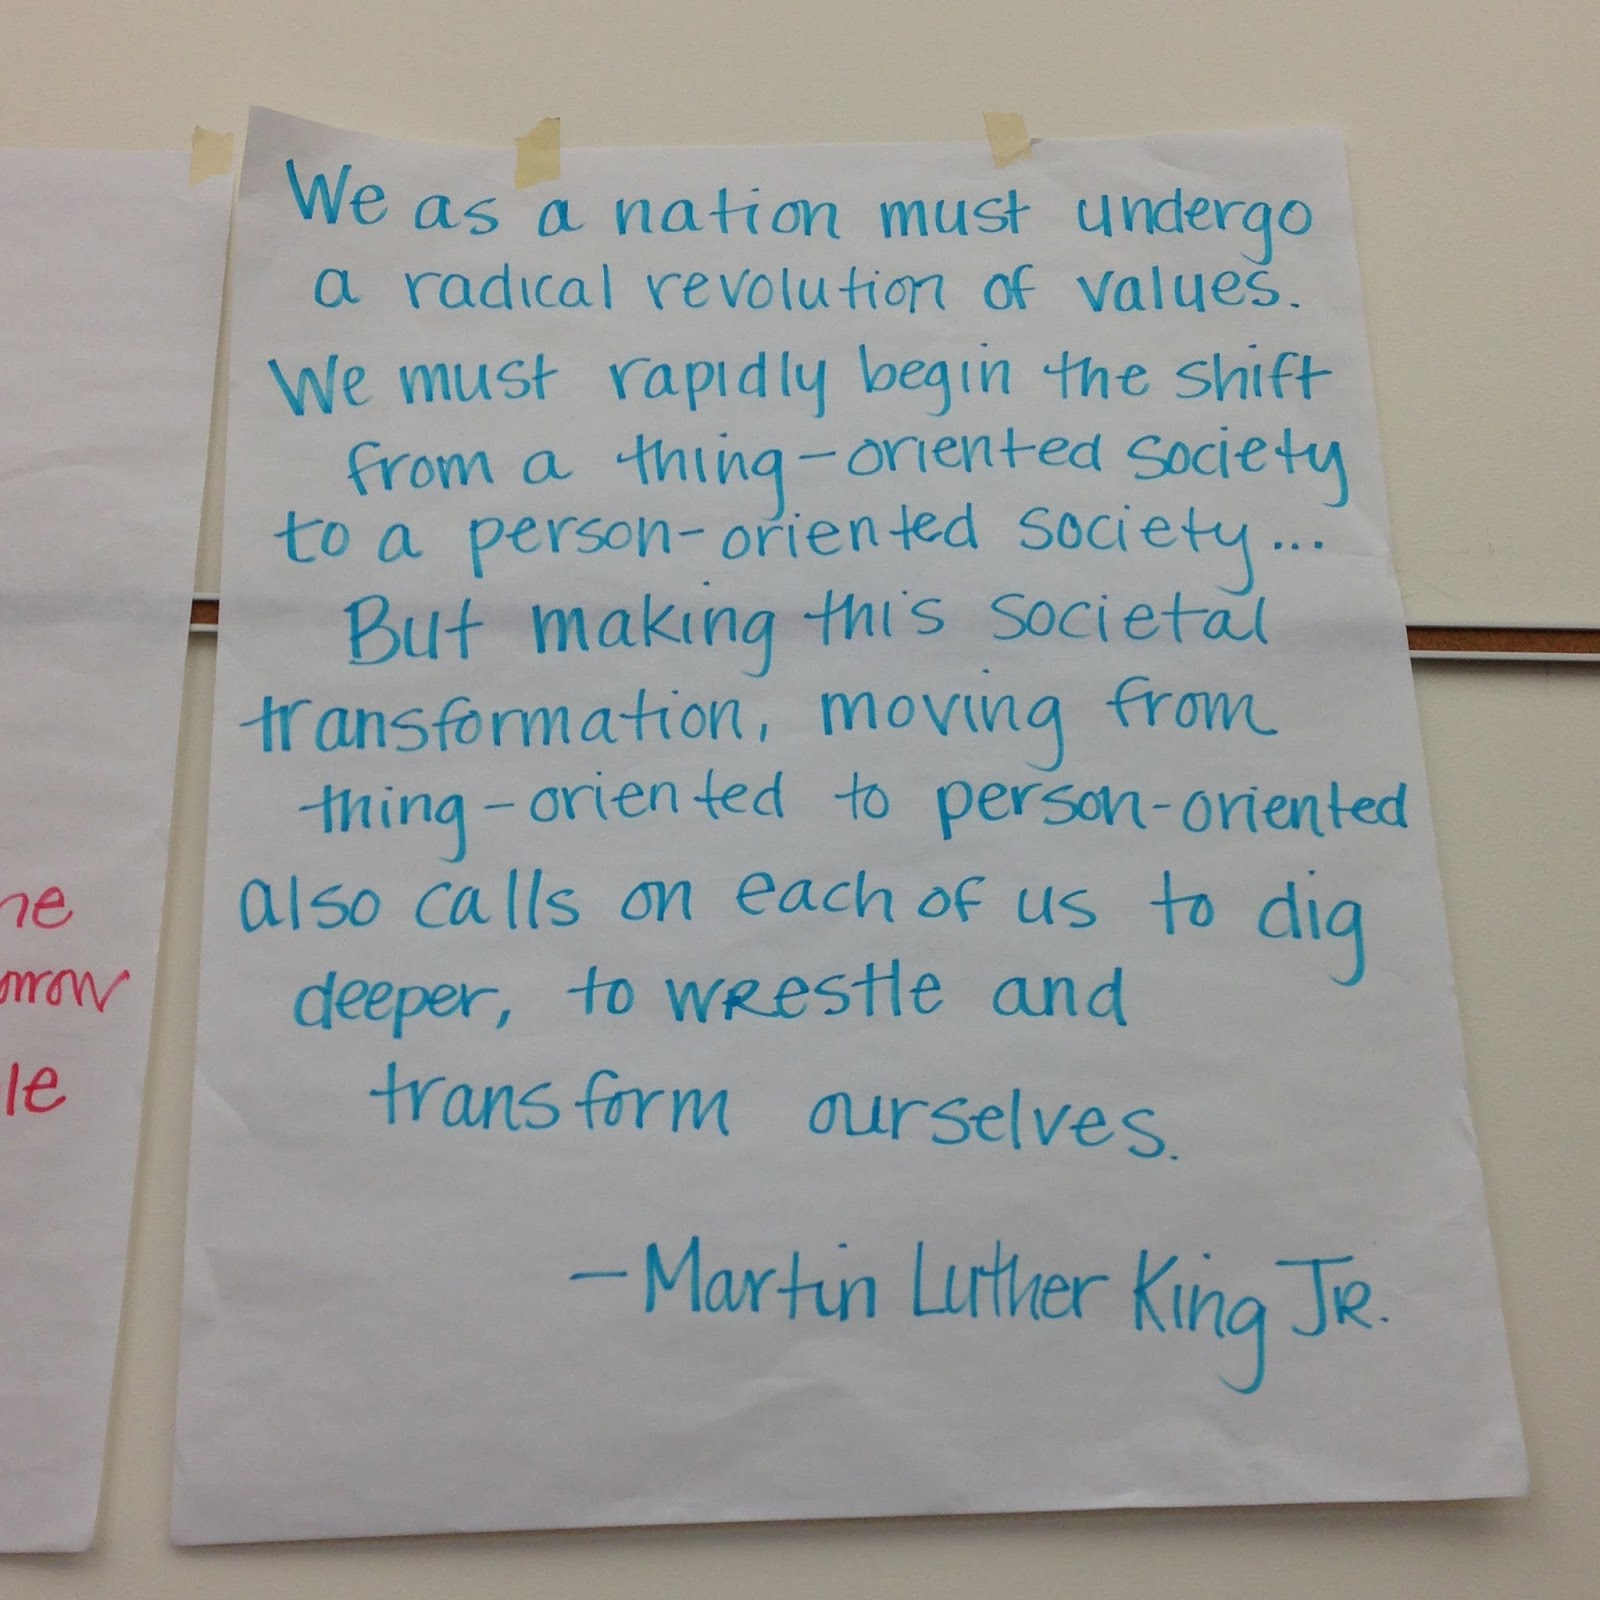 We as a nation must undergo
a radical revolution of values.
We must rapidly begin the shift
from a thing-oriented society
to a person-oriented society...
But making this societal
transformation, moving from
thing-oriented to person-oriented
also calls on each of us to dig
deeper, to wrestle and
transform ourselves.
- Martin Luther King JR.